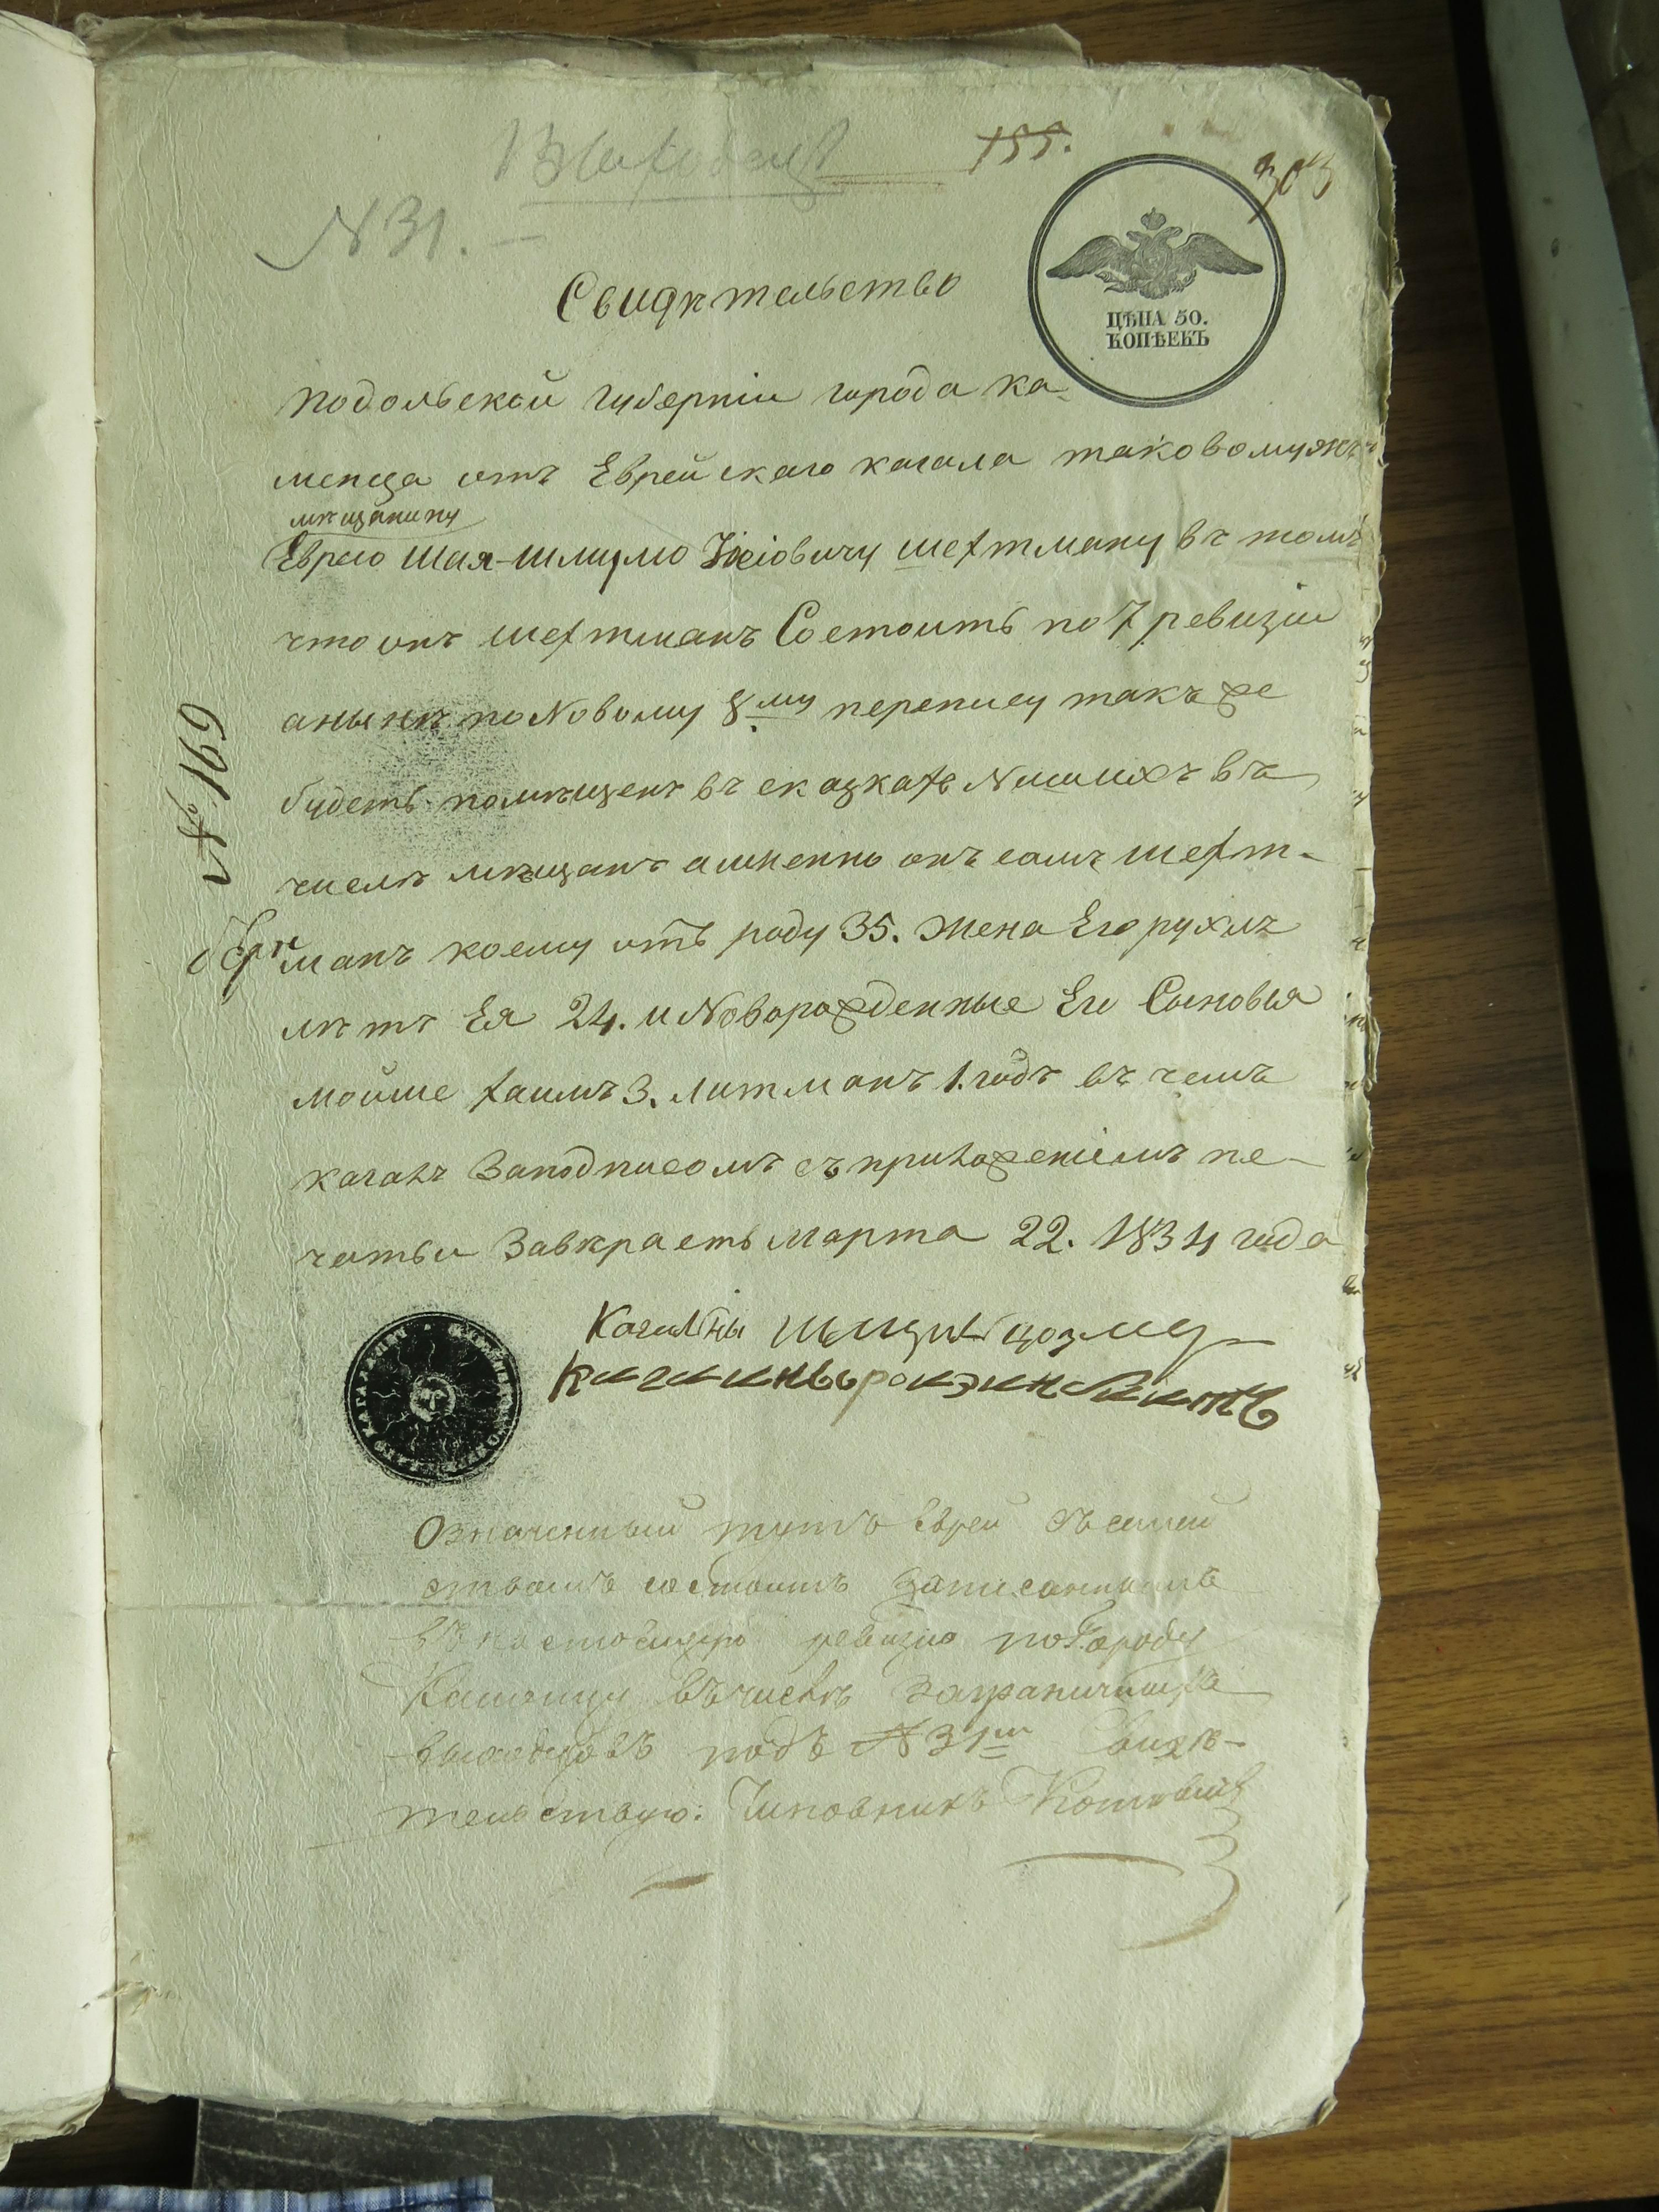 155.
303
N 31.
Свидѣтельство
ЦѢНА 50.
КОПѢЕКЪ
Подольской губерніи города Ка-
менца отъ Еврейскаго кагала таковомужъ
мѣщанину
Еврею Шая-Шлиомо Іосіовичу Шехтману въ томъ
что онъ Шехтманъ Состоитъ по 7 ревизіи
а нынѣ по Новому 8му перепису такъ же
будетъ помѣщенъ въ сказкахъ Низшихъ въ
числѣ мѣщанъ а имѣнно онъ самъ Шехт-
манъ коему отъ роду 35. Жена Его рухлъ
лѣтъ Ея 24. и Новорожденные Его Сыновья
мойше хаимъ 3. литманъ 1. годъ въ чемъ
кагалъ За подписомъ съ приложеніемъ пе-
чатьи Завкраетъ марта 22. 1834 года
№ 169
Кагални
Означенный тутъ Еврей съ семей
ствомъ состоитъ записаннымъ
въ настоящую ревизію по Городу
Каменцу въ числѣ заграничныхъ
выходцовъ подъ N 31м Свидѣ-
тельствую: Чиновникъ